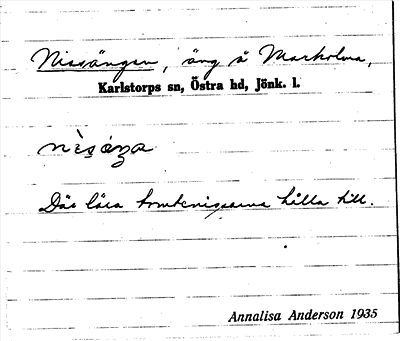 Nissängen, äng å Markolma,
Karlstorps sn, Östra hd, Jönk. l.
Där lära tomtenissarna hålla till.
Annalisa Anderson 1935